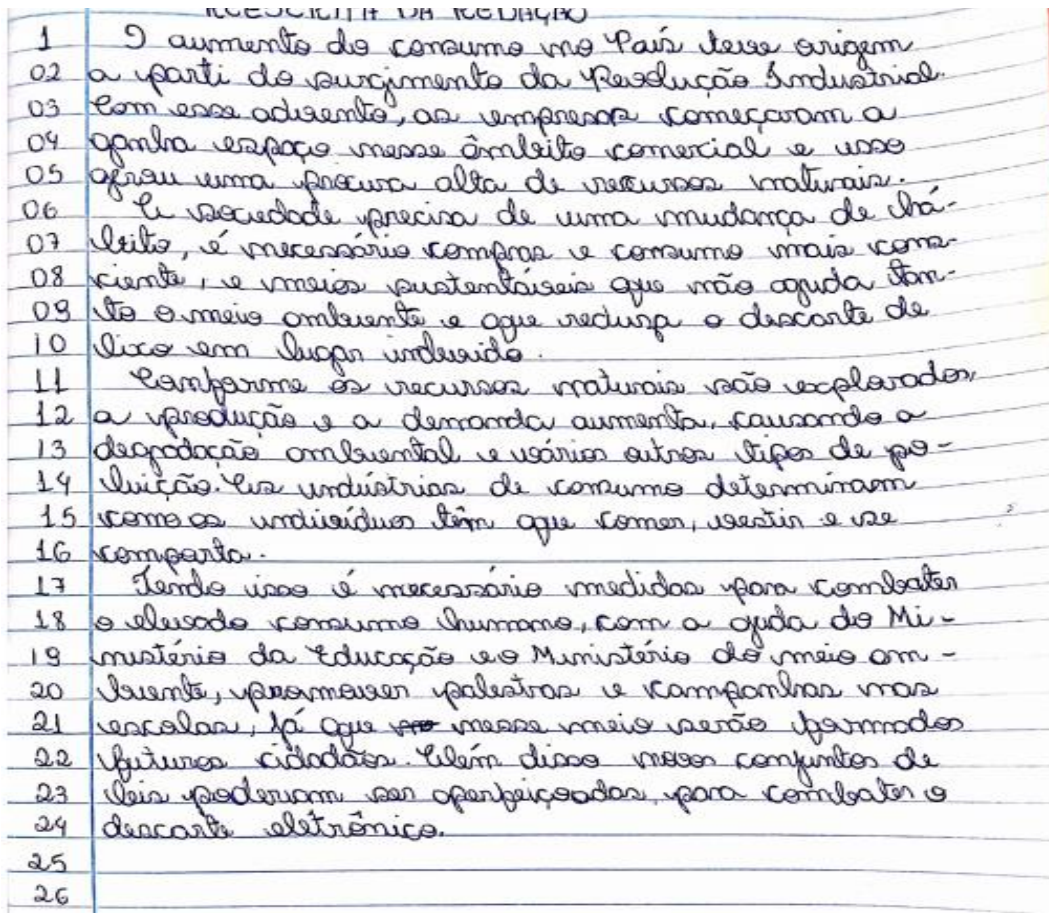 REESCRITA DA REDAÇÃO
1 O aumento do consumo no País teve origem
02 a parti do surgimento da Revolução Industrial.
03 Com esse advento, as empresas começaram a
04 ganha espaço nesse âmbito comercial e isso
05 gerou uma procura alta de recursos naturais.
06 A sociedade precisa de uma mudança de há-
07 bito, é necessário compras e consumo mais cons-
08 ciente, e meios sustentáveis que não aguda tan-
09 to o meio ambiente e que reduza o descarte de
10 lixo em lugar indevido.
11 Conforme os recursos naturais são explorados,
12 a produção e a demanda aumenta, causando a
13 degradação ambiental e vários outros tipos de po-
14 luição. As indústrias de consumo determinam
15 como os indivíduos têm que comer, vestir e se
16 comporta.
17 Tendo isso é necessário medidas para combater
18 o elevado consumo humano, com a ajuda do Mi-
19 nistério da Educação e o Ministério do meio am-
20 biente, promover palestras e campanhas nas
21 escolas, já que nesse meio serão formados
22 futuros cidadãos. Além disso novos conjuntos de
23 leis poderiam ser aperfeiçoadas, para combater o
24 descarte eletrônico.
25
26